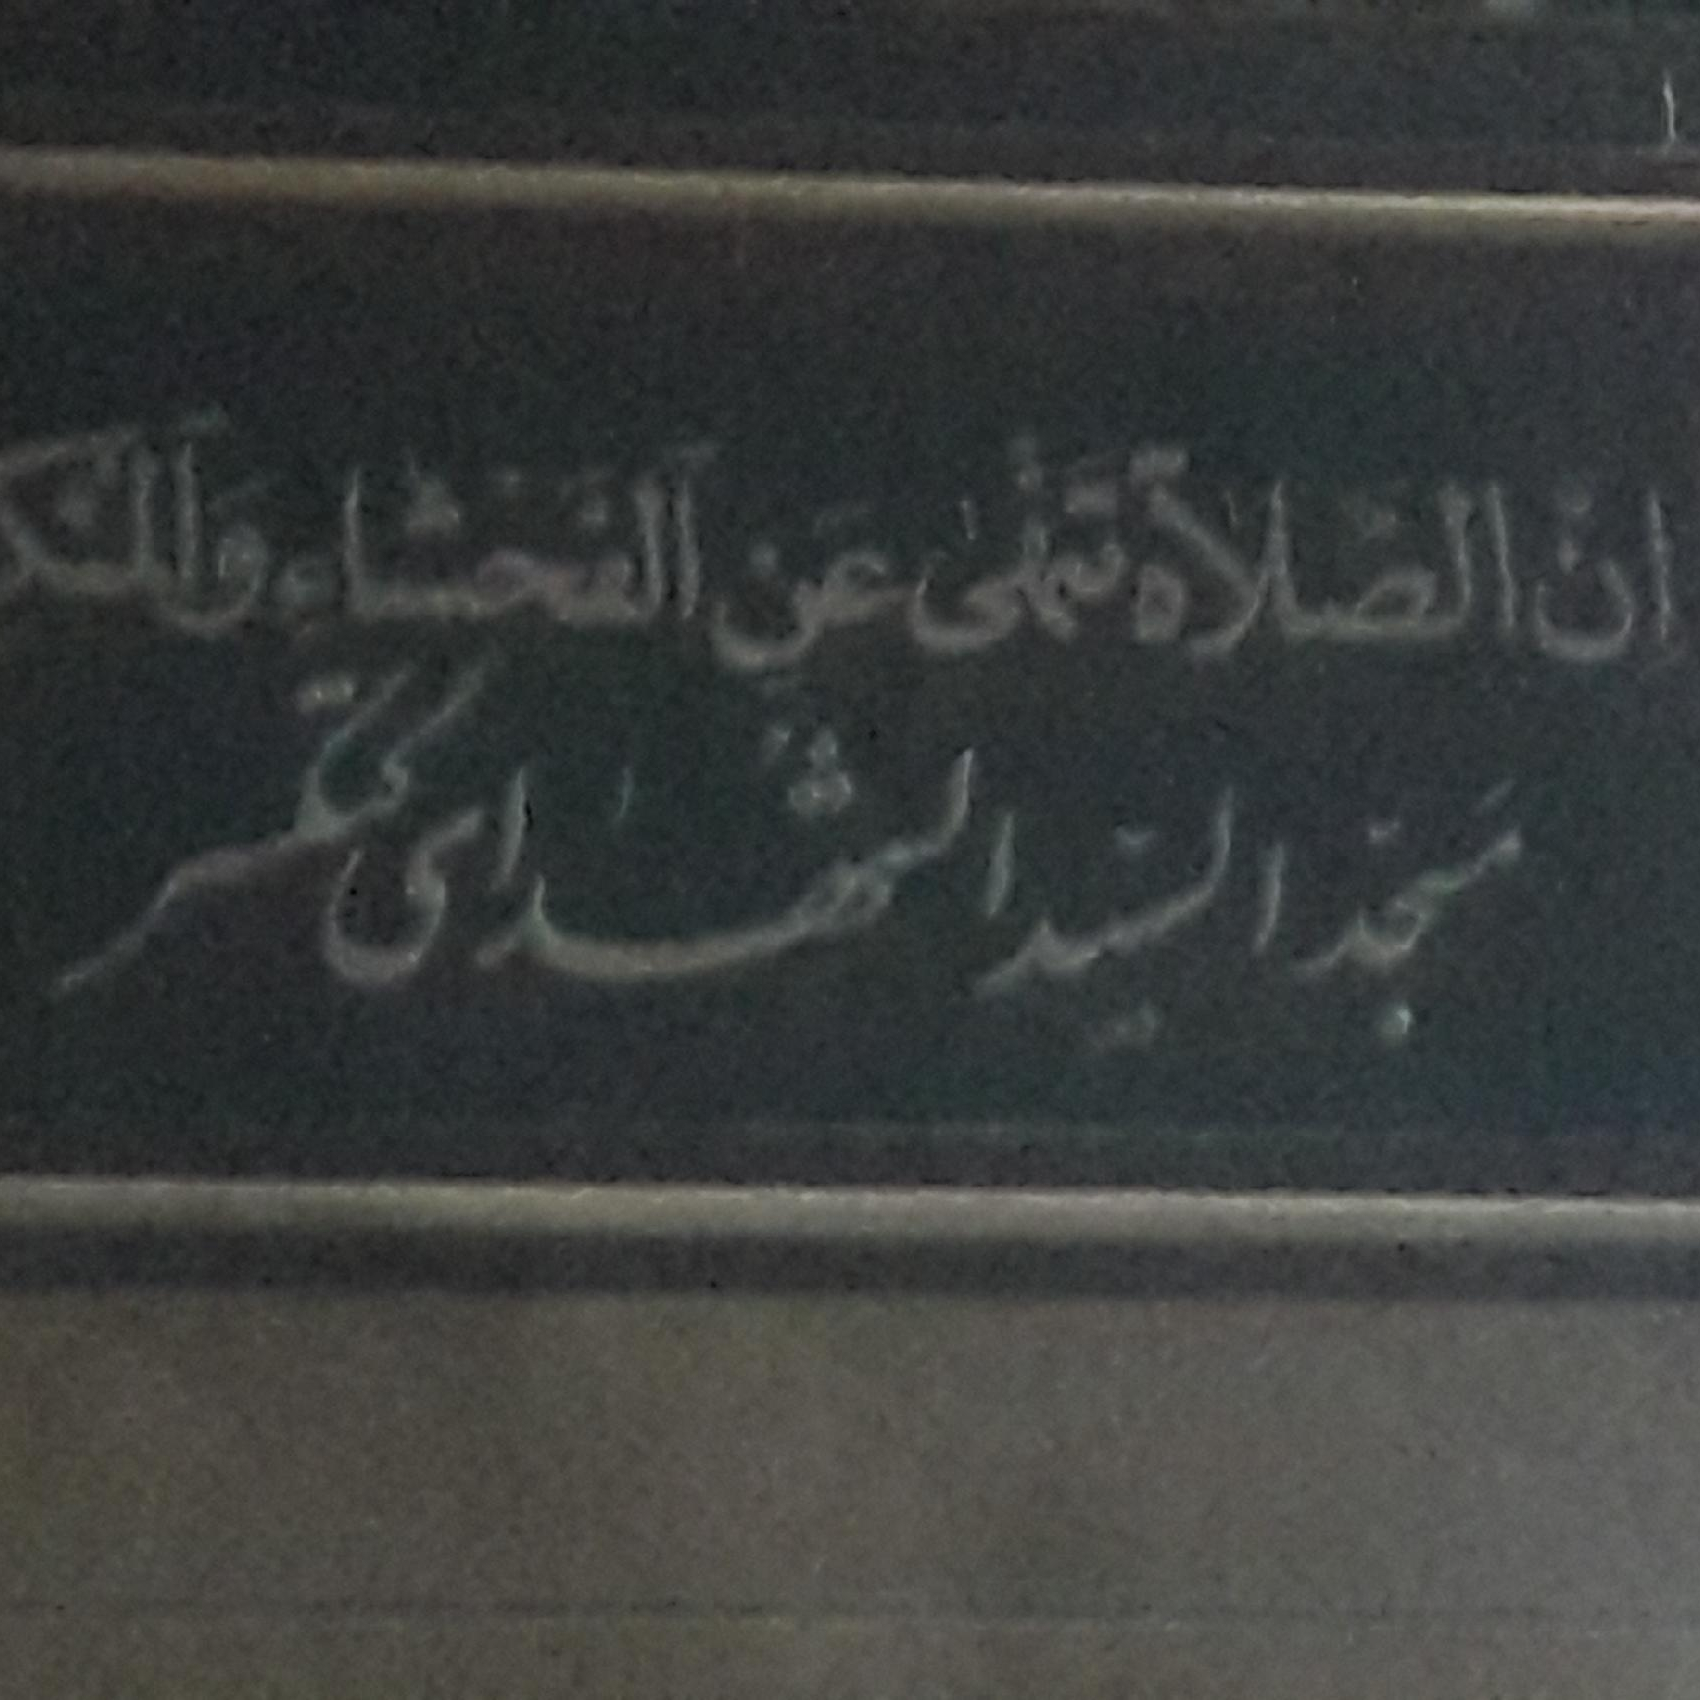 ان الصّلاة تَنْهٰى عَنِ اَلْفَحْشَاءِ وَاَلْمُنْكَ
مسجد السّيد الشهدای گیتگسر